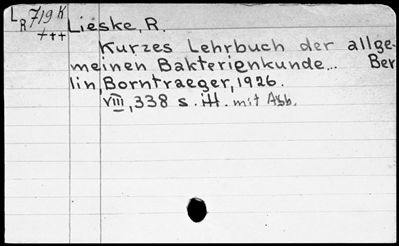 LR 719 K Lieske, R.
+++
Kurzes Lehrbuch der allge-
meinen Bakterienkunde... Ber
lin, Borntraeger, 1926.
VIII, 338 s. ill. mit Abb.